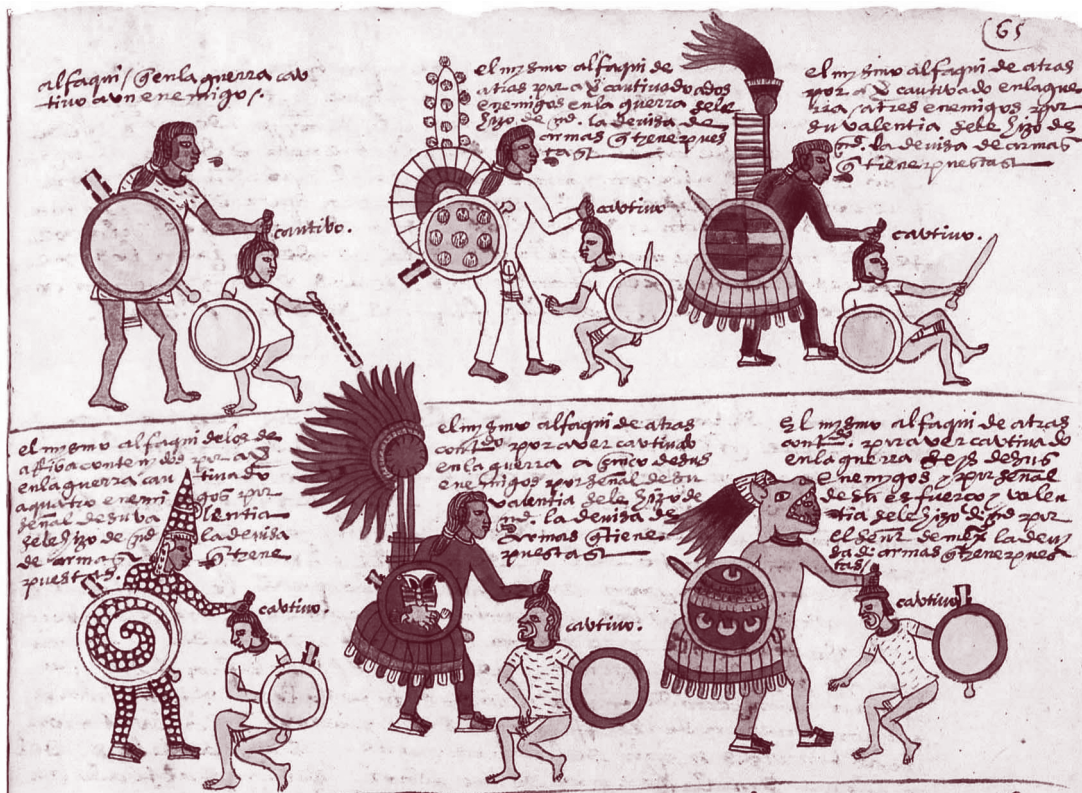 65
alfaqui / q̃ en la guerra cau
tivo a un enemigo /.
cautivo.
el mysmo alfaqui de
atras por a v̄ cautivado a dos
enemigos en la guerra sele
hizo de md. la devisa de
armas q̃ tiene pues
tas
cautivo
el mysmo alfaqui de atras
por a v̄ cautivado en la gue
rra / a tres enemigos por
su valentia sele hizo de
md. la devisa de armas
q̃ tiene puestas
cautivo.
el mysmo alfaqui de los de
arriba contenidos por a v̄
en la guerra cau tivado
a quatro enemi gos por
señal de su va lentia
sele hizo de md la devisa
de armas q̃ tiene
puestas.
cautivo.
el mysmo alfaqui de atras
contdo por aver cautivado
en la guerra a çinco de sus
enemigos por señal de su
valentia sele hizo de
md. la devisa de
armas q̃ tiene
puestas
cautivo.
El mysmo alfaqui de atras
contdo. por aver cautivado
en la guerra seys de sus
enemigos / y por señal
de su esfuerço y valen
tia sele hizo de md por
el señr de mexco la devi
sa de armas q̃ tiene pues
tas /
cautivo